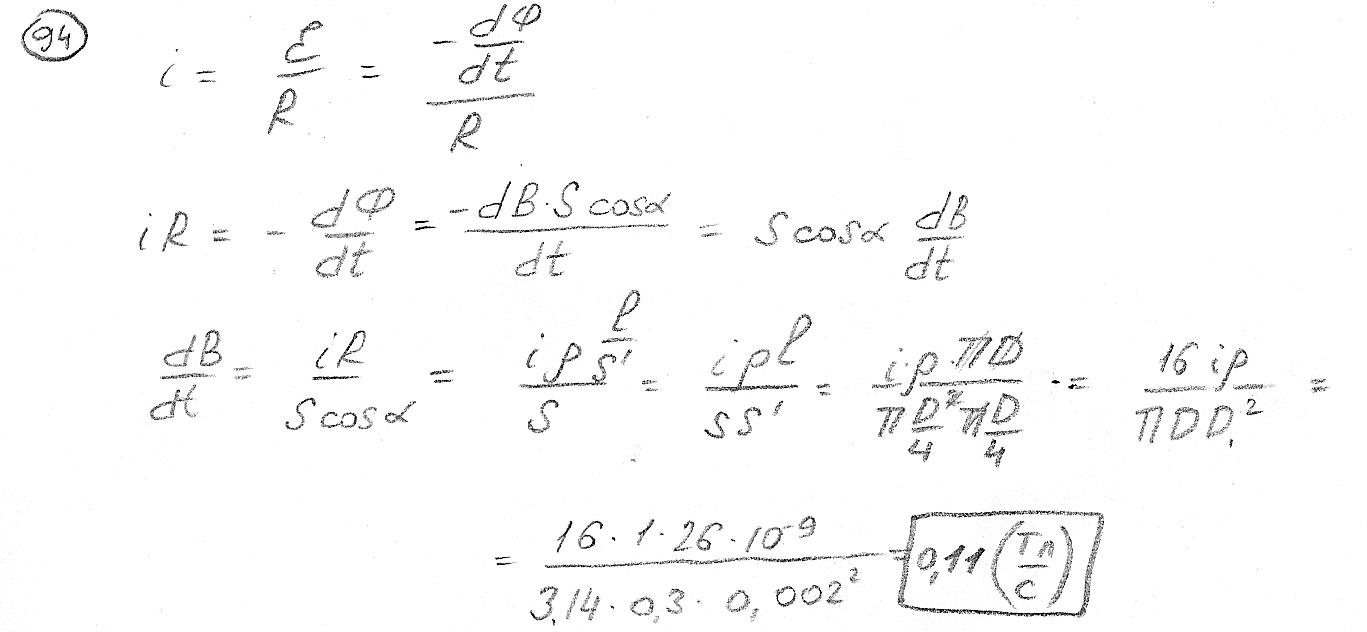 94
i = ℰ/R = (-dΦ/dt)/R
iR = - dΦ/dt = -dB·S cosα/dt = S cosα dB/dt
dB/dt = iR/(S cosα) = (iρ l/S')/S = iρl/(SS') = iρ·πD/(π D²/4 π D/4) = 16iρ/(πDD₁²) =
= 16·1·26·10⁻⁹/(3,14·0,3·0,002²) = 0,11 (Тл/с)